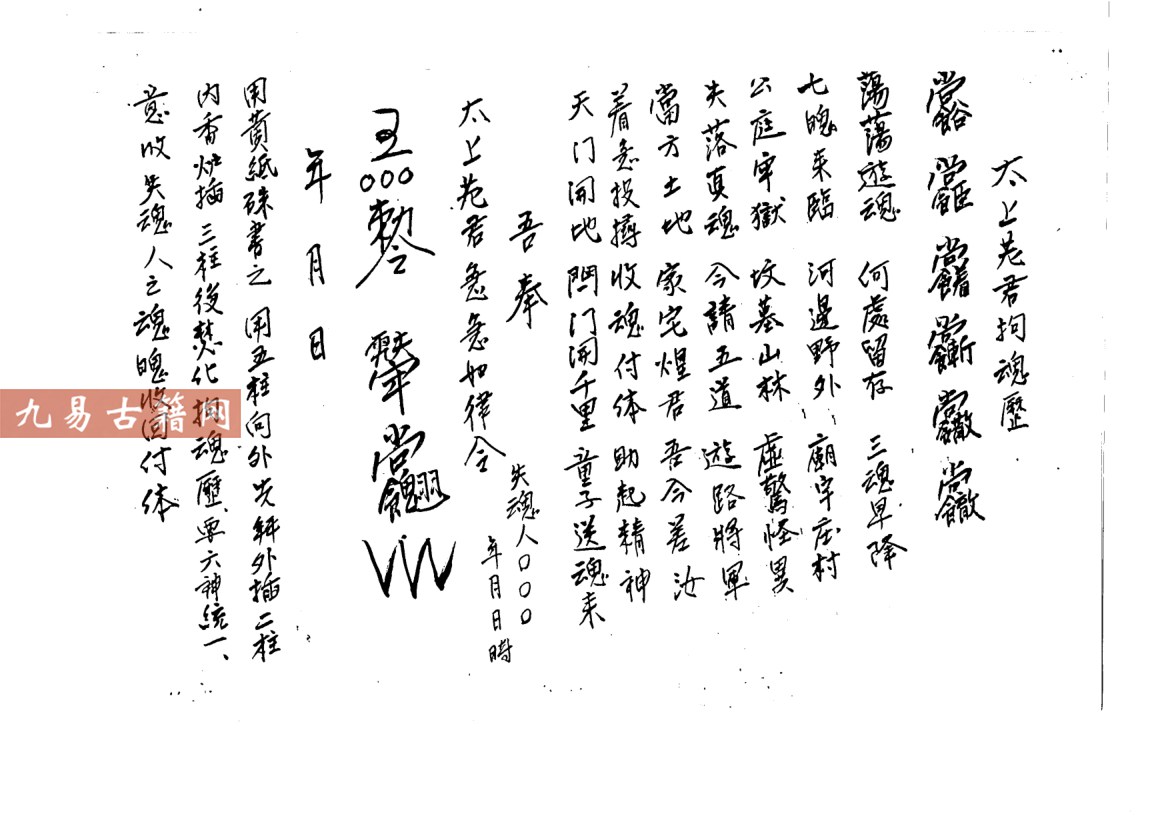 太上老君拘魂歷
蕩蕩遊魂 何處留存 三魂早降
七魄來臨 河邊野外 廟宇庄村
公庭牢獄 坟墓山林 虛驚怪異
失落真魂 今請五道 遊路將軍
當方土地 家宅煌君 吾今差汝
着急投擣收魂付体 助起精神
天门開地門门開千里 童子送魂来
吾奉
太上老君急急如律令
失魂人〇〇〇
年月日時
年 月 日
用黃紙硃書之 用五柱向外先 外插二柱
内香炉插三柱後焚化拘魂歷、要六神統一、
意收失魂人之魂魄收回付体
九易古籍网